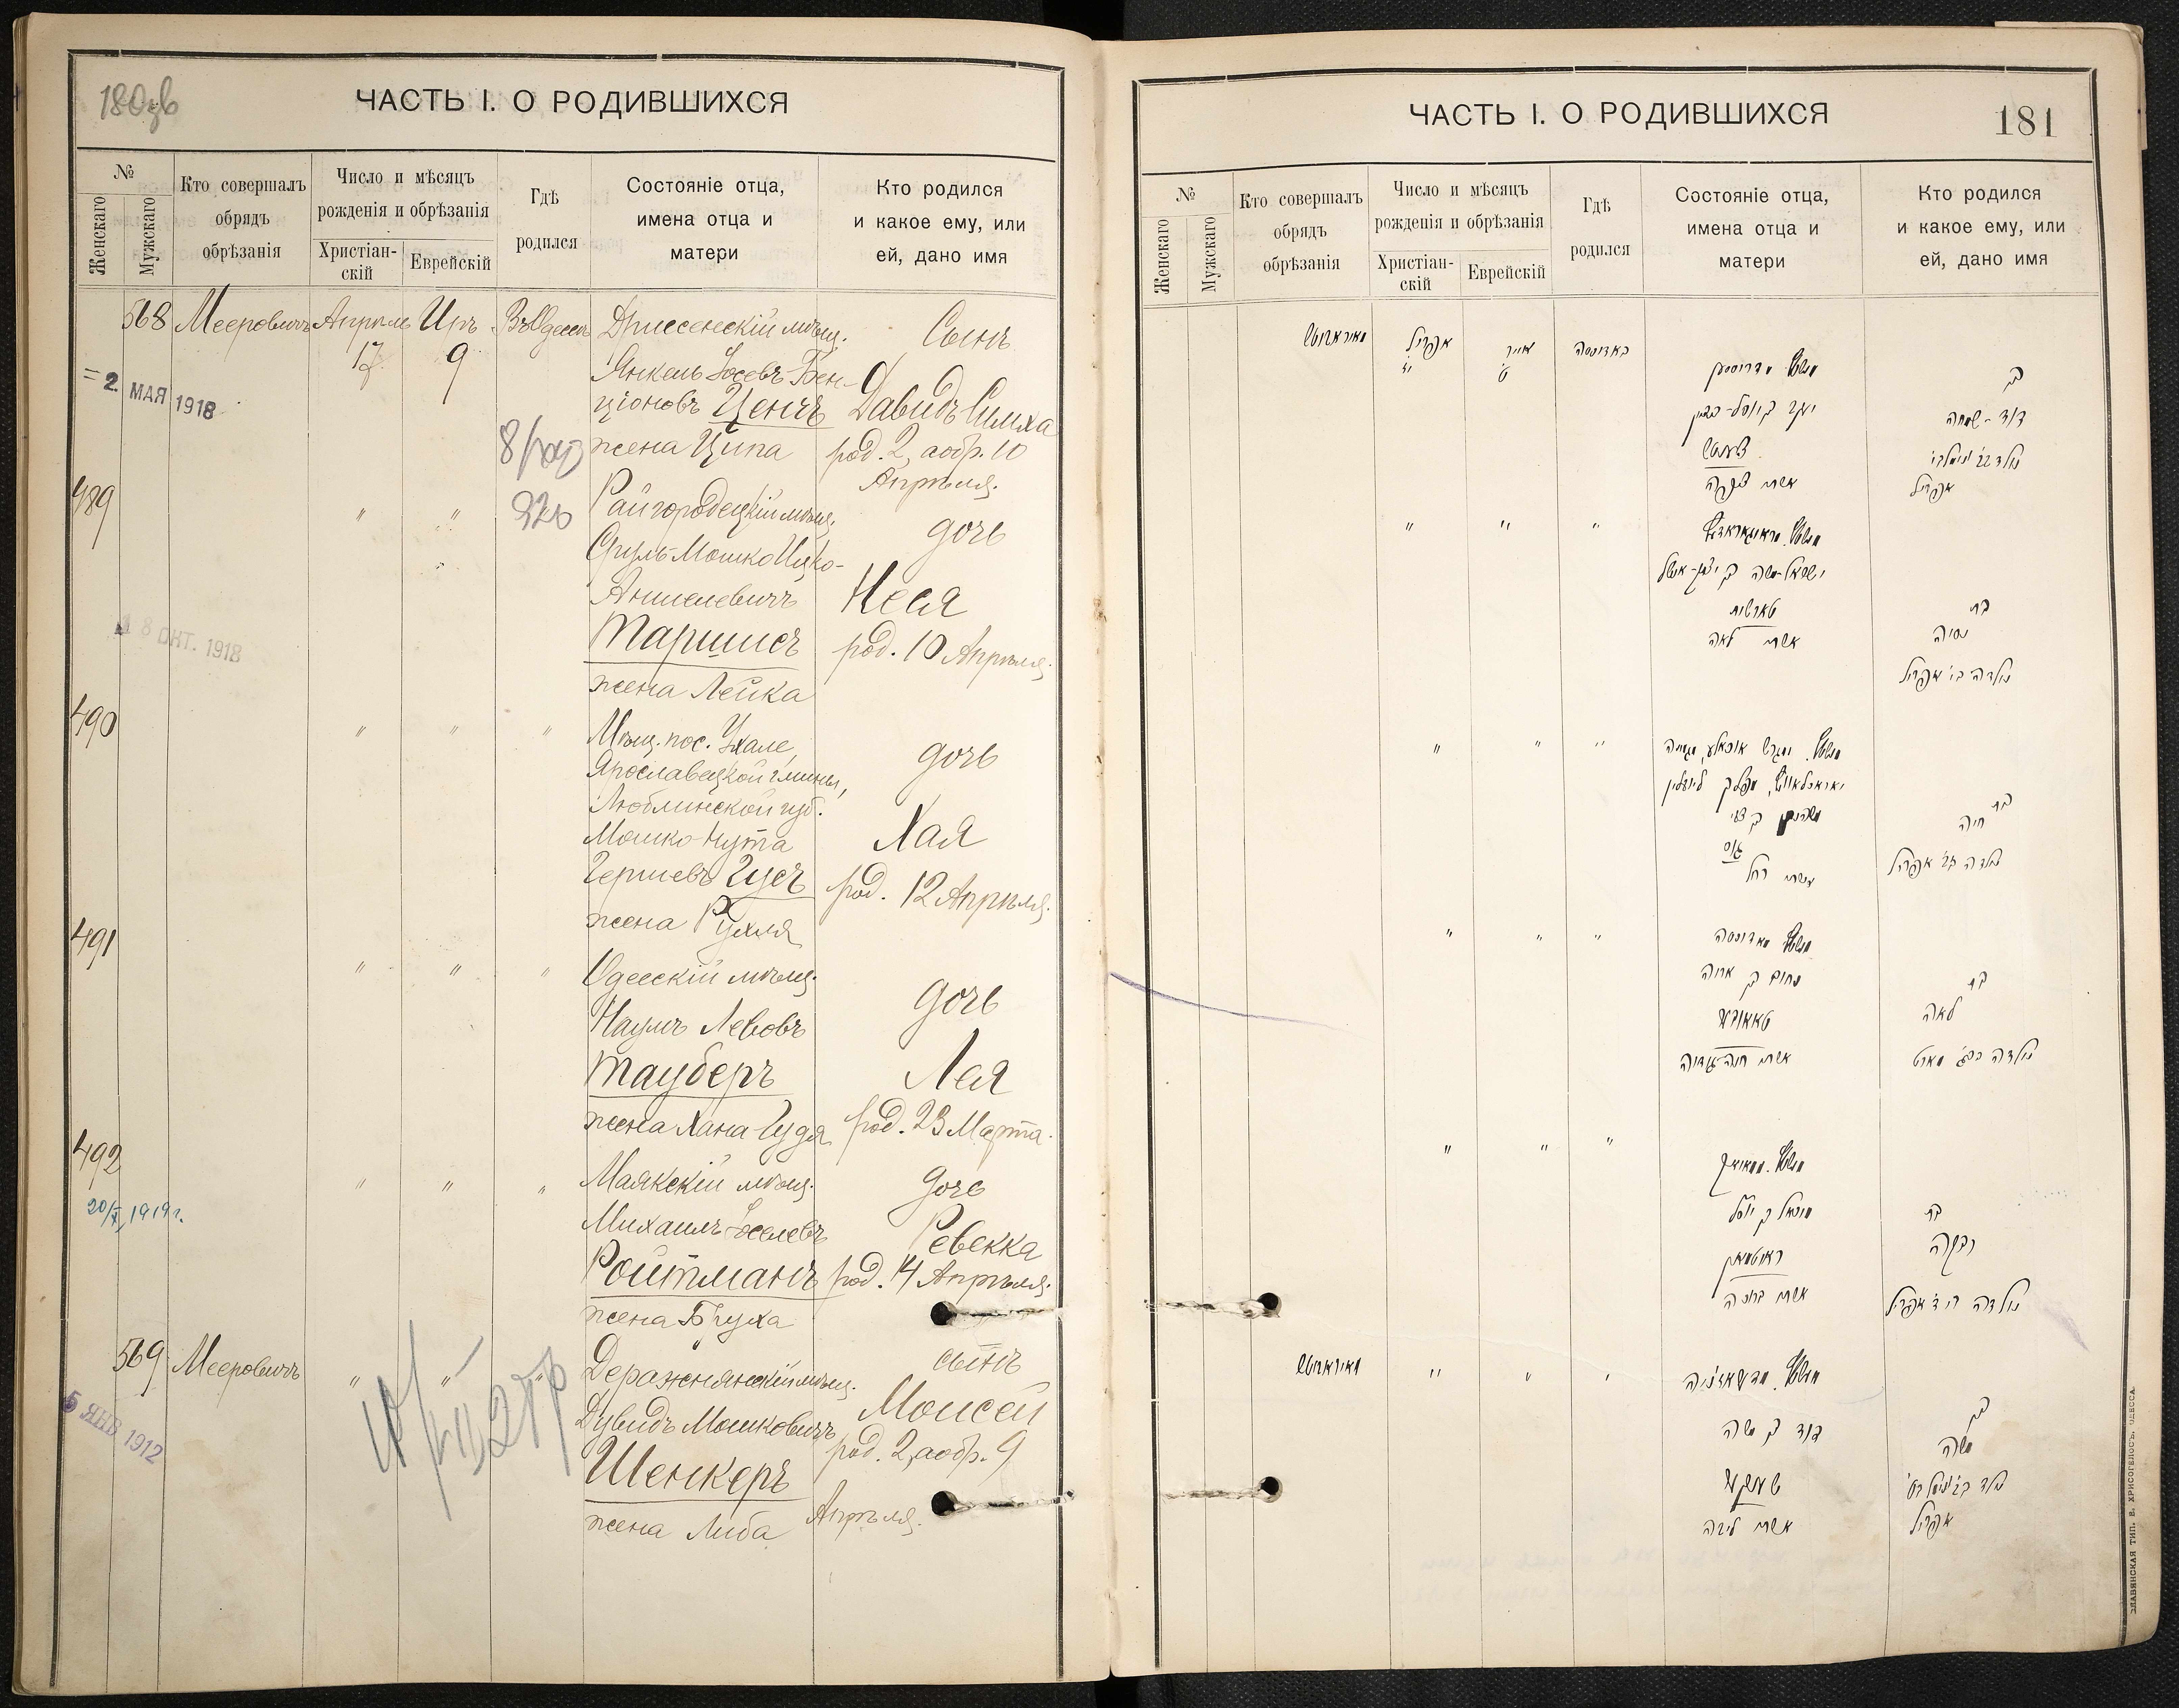 180 об
ЧАСТЬ I. О РОДИВШИХСЯ
№
Женскаго
Мужскаго
Кто совершалъ
обрядъ
обрѣзанія
Число и мѣсяцъ
рожденія и обрѣзанія
Христіан-
скій
Еврейскій
Гдѣ
родился
Состояніе отца,
имена отца и
матери
Кто родился
и какое ему, или
ей, дано имя
568 Мееровичъ Апрѣль Иръ Въ Одессѣ
17 9
= 2 МАЯ 1918
Дриссенскій мѣщ.
Янкель Іосевъ-Бен-
ціоновъ Ценчъ
жена Ципа
Сынъ
Давидъ Симха
род. 2, а обр. 10
Апрѣля.
489
" "
18 ОКТ. 1918
Райгородецкій мѣщ.
Сруль-Мошко Ицко-
Аншелевичъ
Таршисъ
жена Лейка
дочь
Неся
род. 10 Апрѣля.
490
" " "
Мѣщ. пос. Ухале,
Ярославецкой гмины,
Люблинской губ.
Мошко-Нута
Гершевъ Гусъ
жена Рухля
дочь
Хая
род. 12 Апрѣля.
491
" " "
Одесскій мѣщ.
Наумъ Левовъ
Тауберъ
жена Хана-Гудя
дочь
Лея
род. 23 Марта.
492
20/X, 1919 г.
" " "
Маякскій мѣщ.
Михаилъ Іоселевъ
Ройтманъ
жена Бруха
дочь
Ревекка
род. 14 Апрѣля.
569 Мееровичъ
" " "
5 ЯНВ 1912
Деражнянскій мѣщ.
Дувидъ Мошковичъ
Шенкеръ
жена Либа
сынъ
Моисей
род. 2, а обр. 9
Апрѣля.
ЧАСТЬ I. О РОДИВШИХСЯ
181
№
Женскаго
Мужскаго
Кто совершалъ
обрядъ
обрѣзанія
Число и мѣсяцъ
рожденія и обрѣзанія
Христіан-
скій
Еврейскій
Гдѣ
родился
Состояніе отца,
имена отца и
матери
Кто родился
и какое ему, или
ей, дано имя
מאיראוויטש אפריל אייר באדיססה
יז ט
יעקב בן יוסל-בנציון
אשת צפרה
בן
דוד-שמחה
אפריל
" " "
ישראל-משה בן יצחק-אנשל
טארשיס
אשת לאה
בת
נסיה
נולדה בי' אפריל
" " "
גוס
אשת רחל
בת
חיה
נולדה בי"ב אפריל
" " "
נחום בן אריה
טאובער
בת
לאה
נולדה בכ"ג מארט
" " "
מיכאל בן יוסל
ראוטמאן
אשת ברוכה
בת
רבקה
נולדה בי"ד אפריל
מאיראוויטש " " "
דוד בן משה
שענקער
אשת ליבה
בן
משה
אפריל
СЛАВЯНСКАЯ ТИП. Е. ХРИСОГЕЛОСЪ. ОДЕССА.